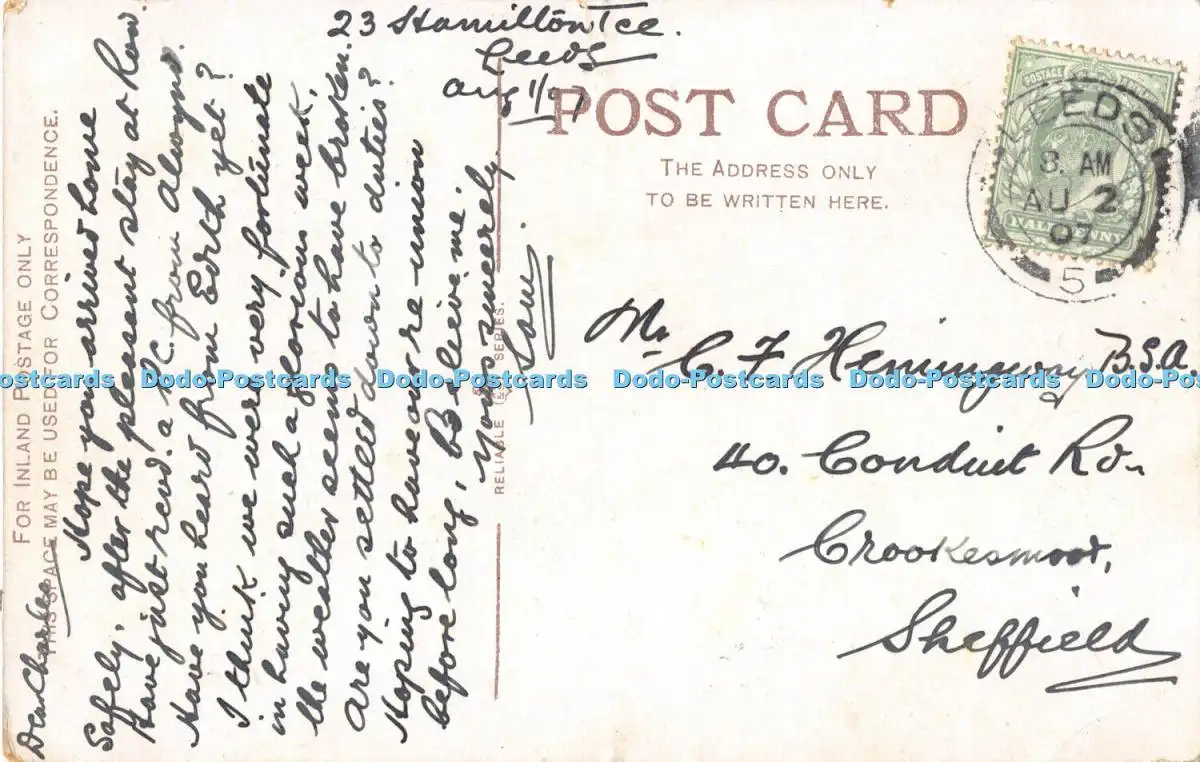 23 Hamilton Tce.
Leeds
Aug 1/07
Dear Charles
Hope you arrived home
safely, after the pleasant stay at Row.
Have just recd. a P.C. from Alwoyns.
Have you heard from Edith yet?
I think we were very fortunate
in having such a glorious week,
the weather seems to have broken.
Are you settled down to duties?
Hoping to have our re-union
before long, Believe me.
Yours sincerely
Sam.
FOR INLAND POSTAGE ONLY
THIS SPACE MAY BE USED FOR CORRESPONDENCE.
RELIABLE SERIES.
POST CARD
THE ADDRESS ONLY
TO BE WRITTEN HERE.
POSTAGE
HALFPENNY
LEEDS
8. AM
AU 2
07
5
Mr
C. F Hemingway B.S.A.
40. Conduit Rd
Crookesmoor,
Sheffield
Dodo-Postcards Dodo-Postcards Dodo-Postcards Dodo-Postcards Dodo-Postcards Dodo-Postcards